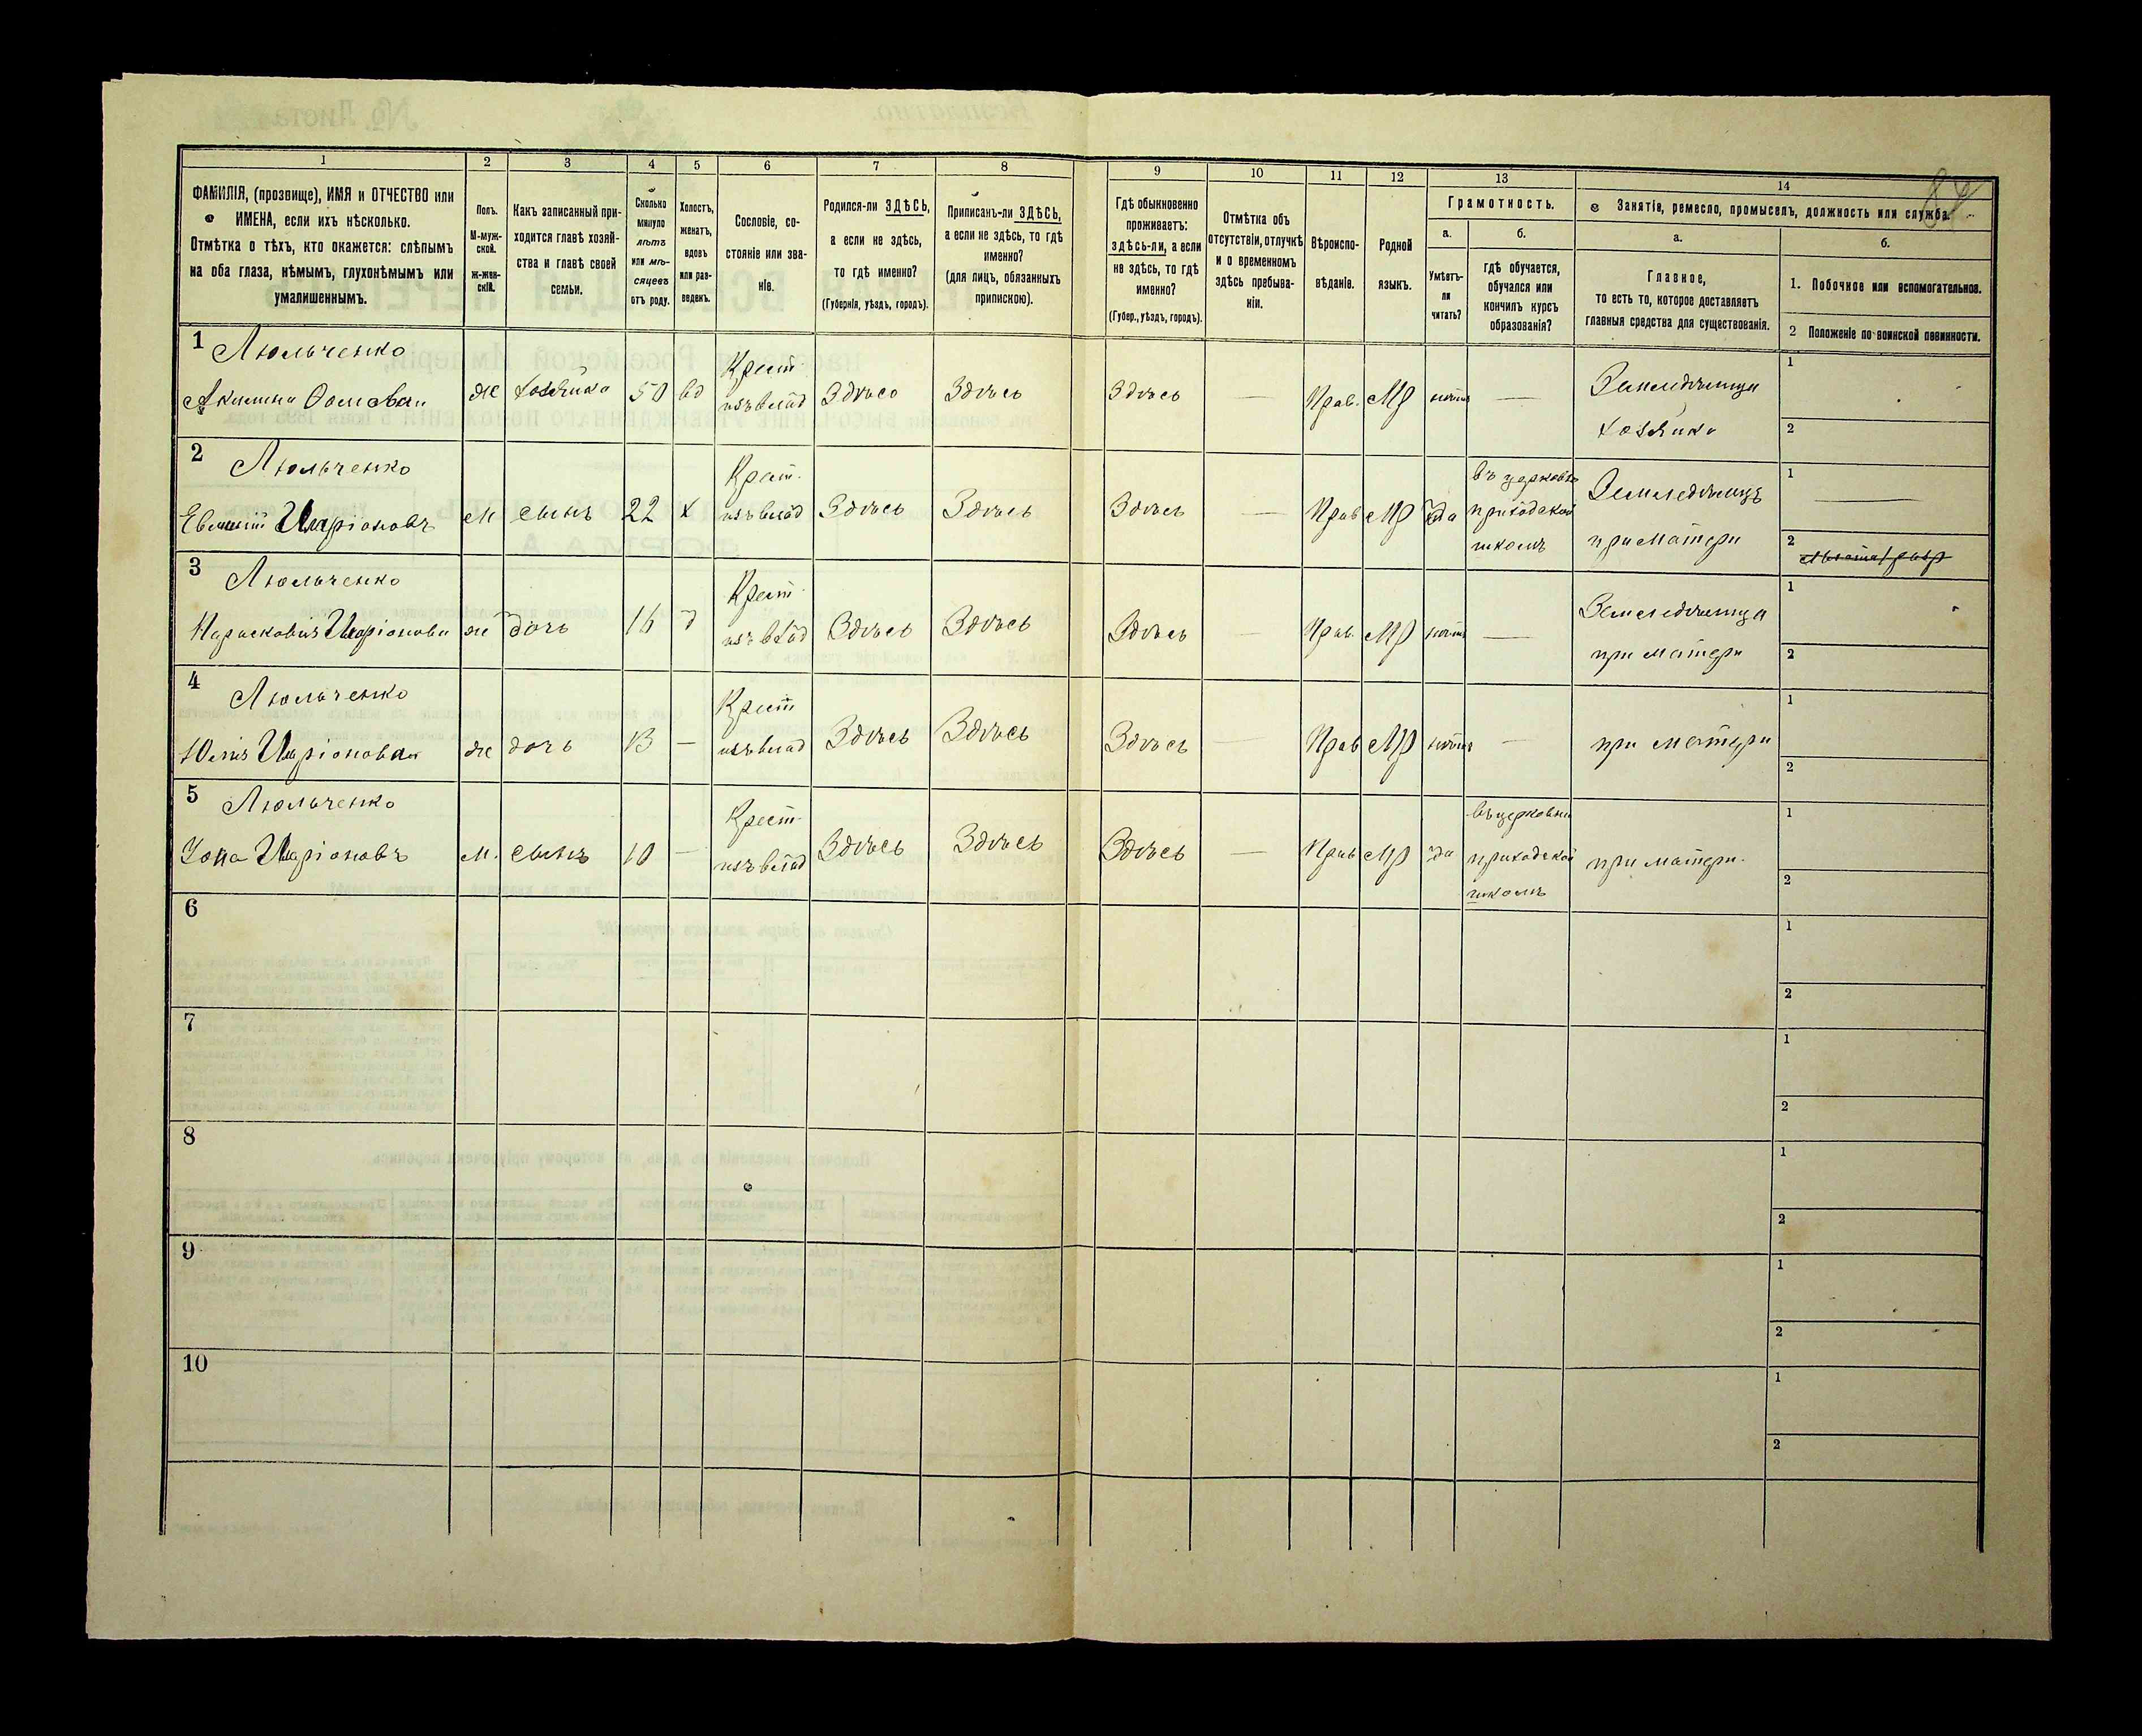 84
1
2
3
4
5
6
7
8
9
10
11
12
13
14
ФАМИЛІЯ, (прозвище), ИМЯ и ОТЧЕСТВО или
ИМЕНА, если ихъ нѣсколько.
Отмѣтка о тѣхъ, кто окажется: слѣпымъ
на оба глаза, нѣмымъ, глухонѣмымъ или
умалишеннымъ.
Полъ.
М-муж-
ской.
ж-жен-
скій.
Какъ записанный при-
ходится главѣ хозяй-
ства и главѣ своей
семьи.
Сколько
минуло
лѣтъ
или мѣ-
сяцевъ
отъ роду.
Холостъ,
женатъ,
вдовъ
или раз-
веденъ.
Сословіе, со-
стояніе или зва-
ніе.
Родился-ли ЗДѢСЬ,
а если не здѣсь,
то гдѣ именно?
(Губернія, уѣздъ, городъ).
Приписанъ-ли ЗДѢСЬ,
а если не здѣсь, то гдѣ
именно?
(для лицъ, обязанныхъ
припискою).
Гдѣ обыкновенно
проживаетъ:
здѣсь-ли, а если
не здѣсь, то гдѣ
именно?
(Губер., уѣздъ, городъ).
Отмѣтка объ
отсутствіи, отлучкѣ
и о временномъ
здѣсь пребыва-
ніи.
Вѣроиспо-
вѣданіе.
Родной
языкъ.
Грамотность.
а.
Умѣетъ-
ли
читать?
б.
гдѣ обучается,
обучался или
кончилъ курсъ
образованія?
Занятіе, ремесло, промыселъ, должность или служба.
а.
Главное,
то есть то, которое доставляетъ
главныя средства для существованія.
б.
1. Побочное или вспомогательное.
2 Положеніе по воинской повинности.
1 Люльченко
Крест.
ж хозяйка 50 вд изъ влад Здѣсь Здѣсь Здѣсь — Прав. Мр нѣтъ — Земледѣлица
хозяйка
1
2
2 Люльченко
Крест.
Евтихій Иларіоновъ м сынъ 22 х изъ влад Здѣсь Здѣсь Здѣсь — Прав Мр да
въ церковно
приходской
школѣ
Земледѣлецъ
при матери
1 —
2
3 Люльченко
Крест.
Парасковія Иларіонова ж дочь 16 д изъ влад Здѣсь Здѣсь Здѣсь — Прав. Мр нѣтъ — Земледѣлица
при матери
1
2
4 Люльченко
Крест
Юлія Иларіонова ж дочь 13 — изъ влад Здѣсь Здѣсь Здѣсь — Прав Мр нѣтъ — при матери
1
2
5 Люльченко
Крест.
Іона Иларіоновъ м. сынъ 10 — изъ влад Здѣсь Здѣсь Здѣсь — Прав Мр да
въ церковно
приходской
школѣ
при матери.
1
2
6
1
2
7
1
2
8
1
2
9
1
2
10
1
2